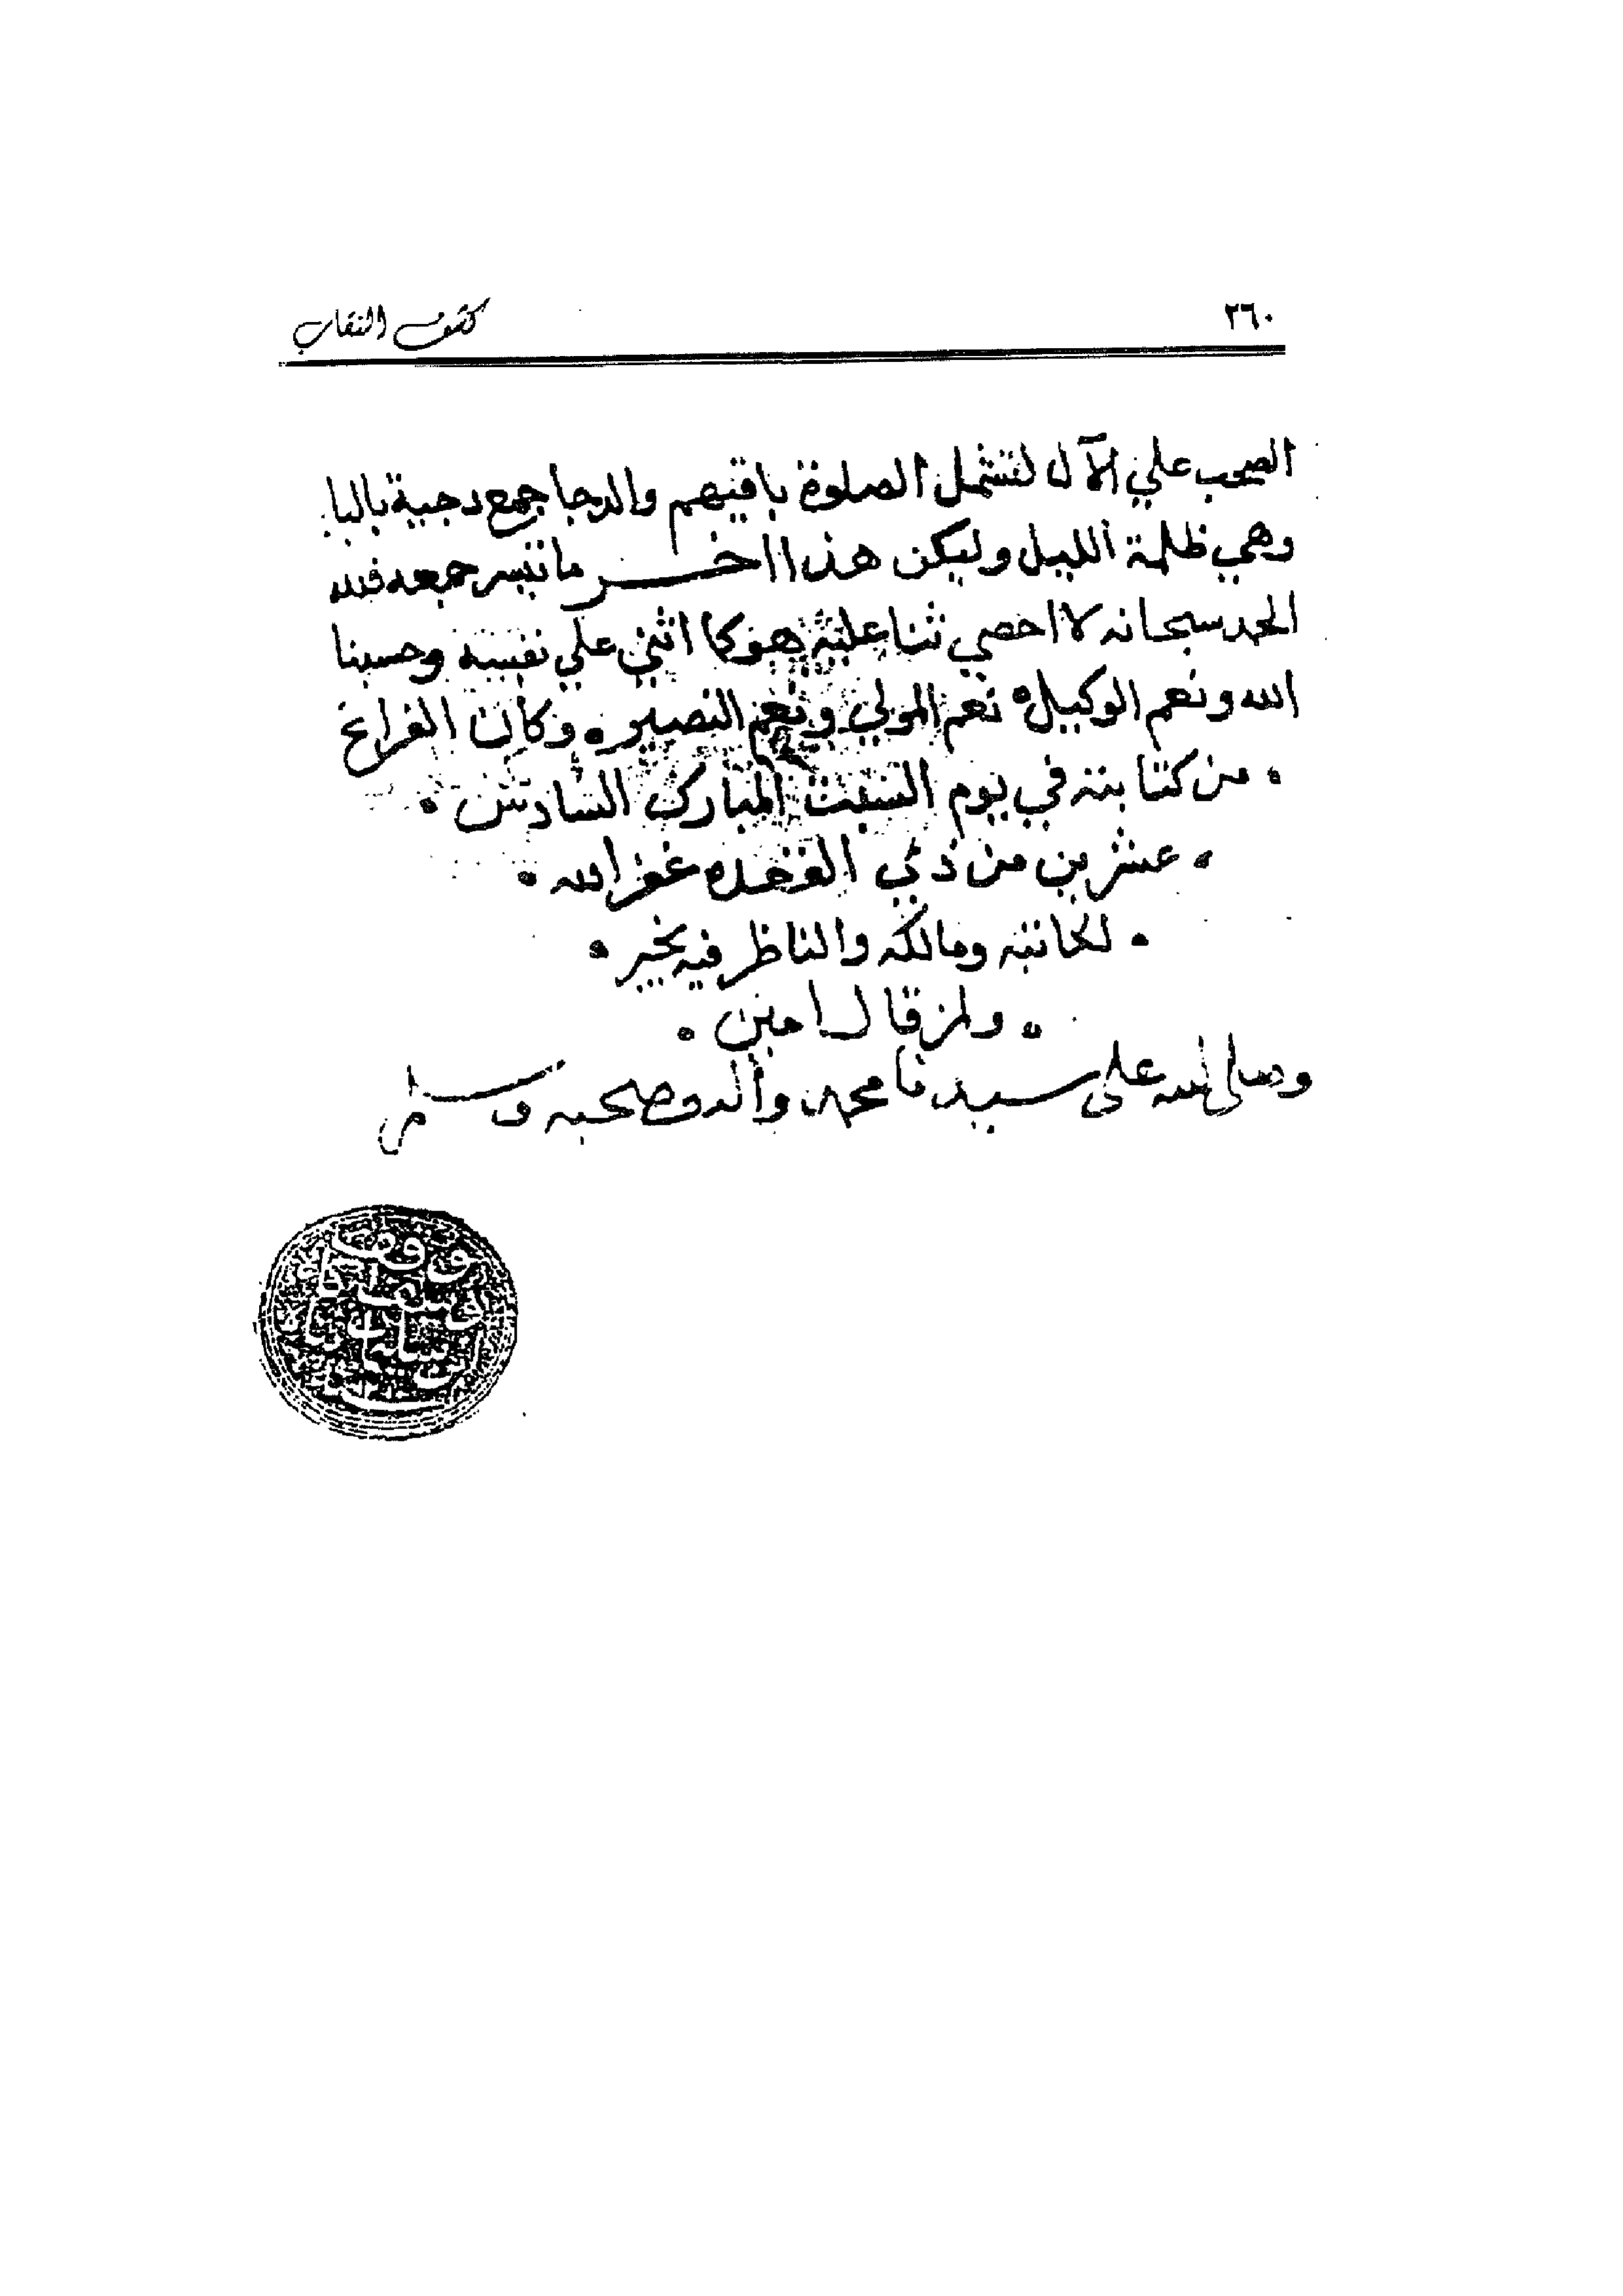 ٣٦٠
كشف النقاب
الصحب علي الآل لتشمل الصلوة باقيهم والدجا جمع دجية بالبا
وهي ظلمة الليل وليكن هذا اخر ما تيسر جمعه فلله
الحمد سبحانه لا احصي ثنا عليه هو كما اثني علي نفسه وحسبنا
الله ونعم الوكيل نعم المولي ونعم النصير وكان الفراغ
من كتابته في يوم السبت المبارك السادس
عشرين من ذي القعده غفر الله
لكاتبه ومالكه والناظر فيه بخير
ولمن قال امين
وصلى الله على سيدنا محمد واله وصحبه وسلم